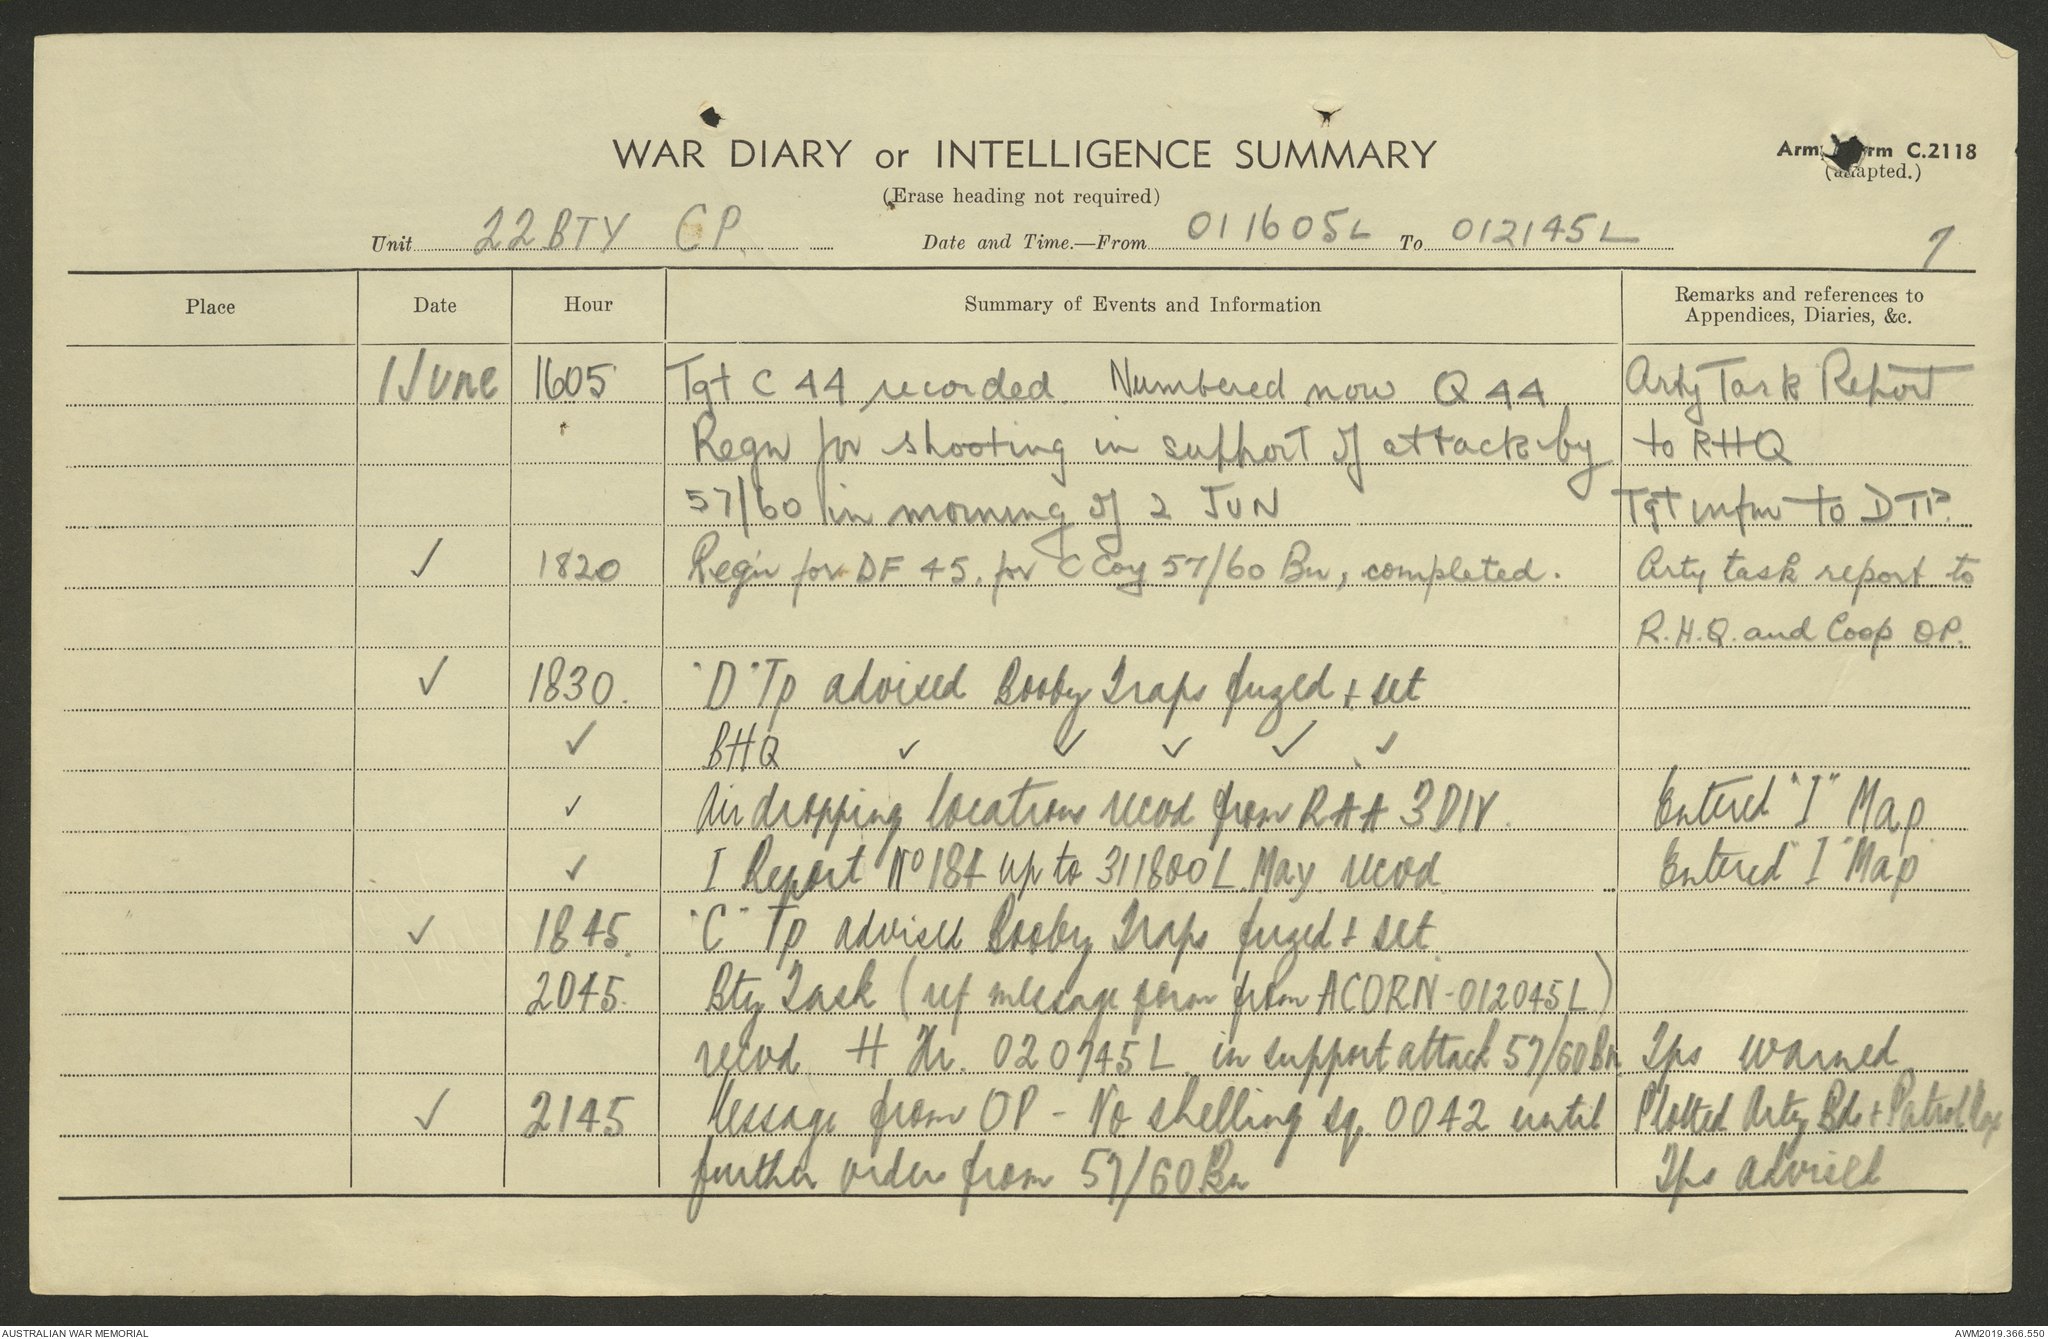 WAR DIARY or INTELLIGENCE SUMMARY
Army Form C.2118
(Erase heading not required)
(adapted.)
Unit 22 BTY CP. Date and Time.—From 011605L To 012145L
7
Place Date Hour Summary of Events and Information Remarks and references to
Appendices, Diaries, &c.
1 June 1605 Tgt C 44 recorded. Numbered now Q 44 Arty Task Report
Regn for shooting in support of attack by to RHQ
57/60 in morning of 2 JUN Tgt infm to D TP.
✓ 1820 Reg'n for DF 45, for C Coy 57/60 Bn, completed. Arty task report to
R.H.Q. and Coop OP.
✓ 1830. "D" Tp advised Booby Traps fuzed + set
✓ BHQ ✓ ✓ ✓ ✓ ✓
✓ Air dropping locations recvd from RAA 3 DIV. Entered "I" Map
✓ I Report No 184 up to 311800L May recvd Entered "I" Map
✓ 1845. "C" Tp advised Booby Traps fuzed + set
2045. Bty Task (ref message form from ACORN - 012045L)
recvd H Hr. 020745L in support attack 57/60 Bn Tps warned
✓ 2145 Message from OP - No shelling sq. 0042 until Plotted Arty Bde + Patrol
further orders from 57/60 Bn Tps advised
AUSTRALIAN WAR MEMORIAL
AWM2019.366.550